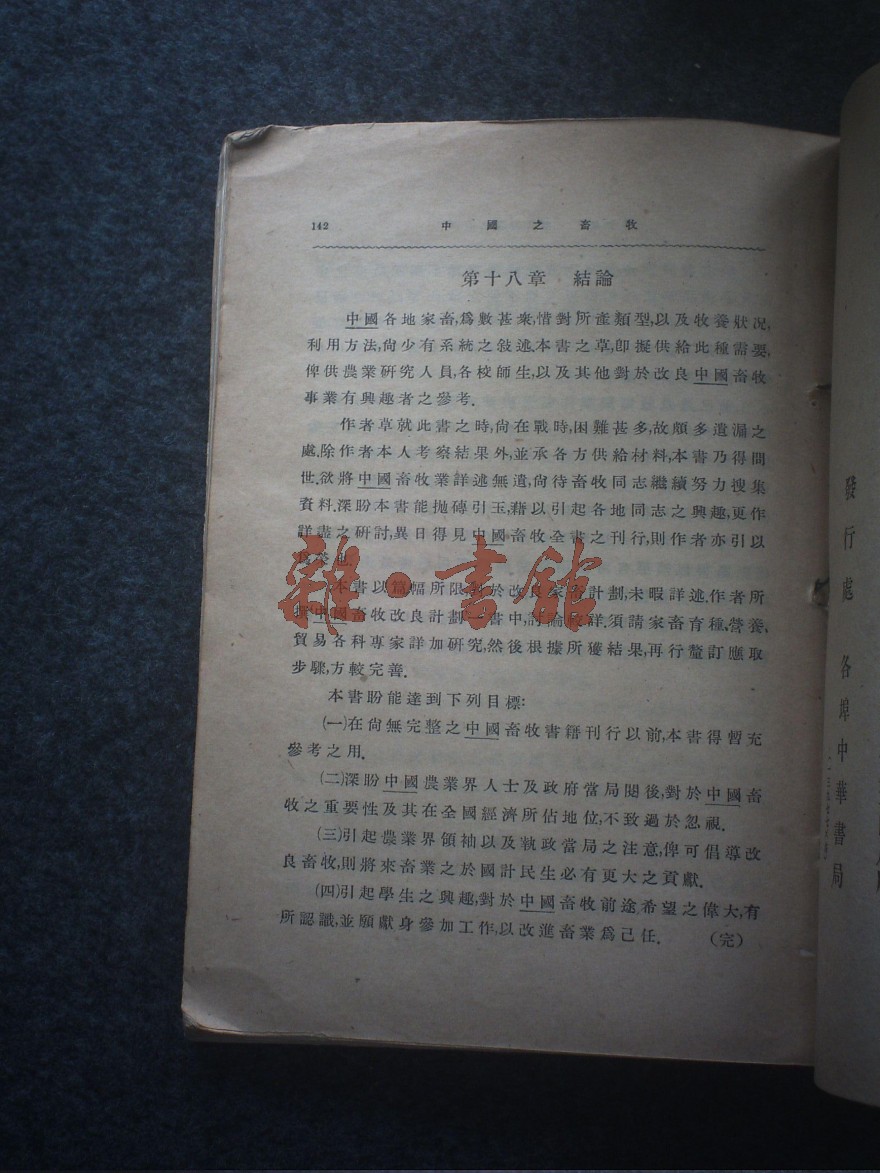 142 中國之畜牧
第十八章 結論
中國各地家畜,爲數甚衆,惜對所產類型,以及牧養狀况,
利用方法,尙少有系統之敘述.本書之草,卽擬供給此種需要,
俾供農業硏究人員,各校師生,以及其他對於改良中國畜牧
事業有興趣者之參考.
作者草就此書之時,尙在戰時,困難甚多,故頗多遺漏之
處.除作者本人考察結果外,並承各方供給材料,本書乃得問
世.欲將中國畜牧業詳述無遺,尙待畜牧同志繼續努力搜集
資料.深盼本書能拋磚引玉,藉以引起各地同志之興趣,更作
詳盡之硏討,異日得見中國畜牧全書之刊行,則作者亦引以
也.
本書以篇幅所限,對於改良家畜計劃,未暇詳述.作者所
中國畜牧改良計劃書中,討論較詳.須請家畜育種,營養,
貿易各科專家詳加硏究,然後根據所獲結果,再行釐訂應取
步驟,方較完善.
本書盼能達到下列目標:
(一)在尙無完整之中國畜牧書籍刊行以前,本書得暫充
參考之用.
(二)深盼中國農業界人士及政府當局閱後,對於中國畜
牧之重要性及其在全國經濟所佔地位,不致過於忽視.
(三)引起農業界領袖以及執政當局之注意,俾可倡導改
良畜牧,則將來畜業之於國計民生必有更大之貢獻.
(四)引起學生之興趣,對於中國畜牧前途希望之偉大,有
所認識,並願獻身參加工作,以改進畜業爲己任. (完)
雜·書館
發行處 各埠中華書局